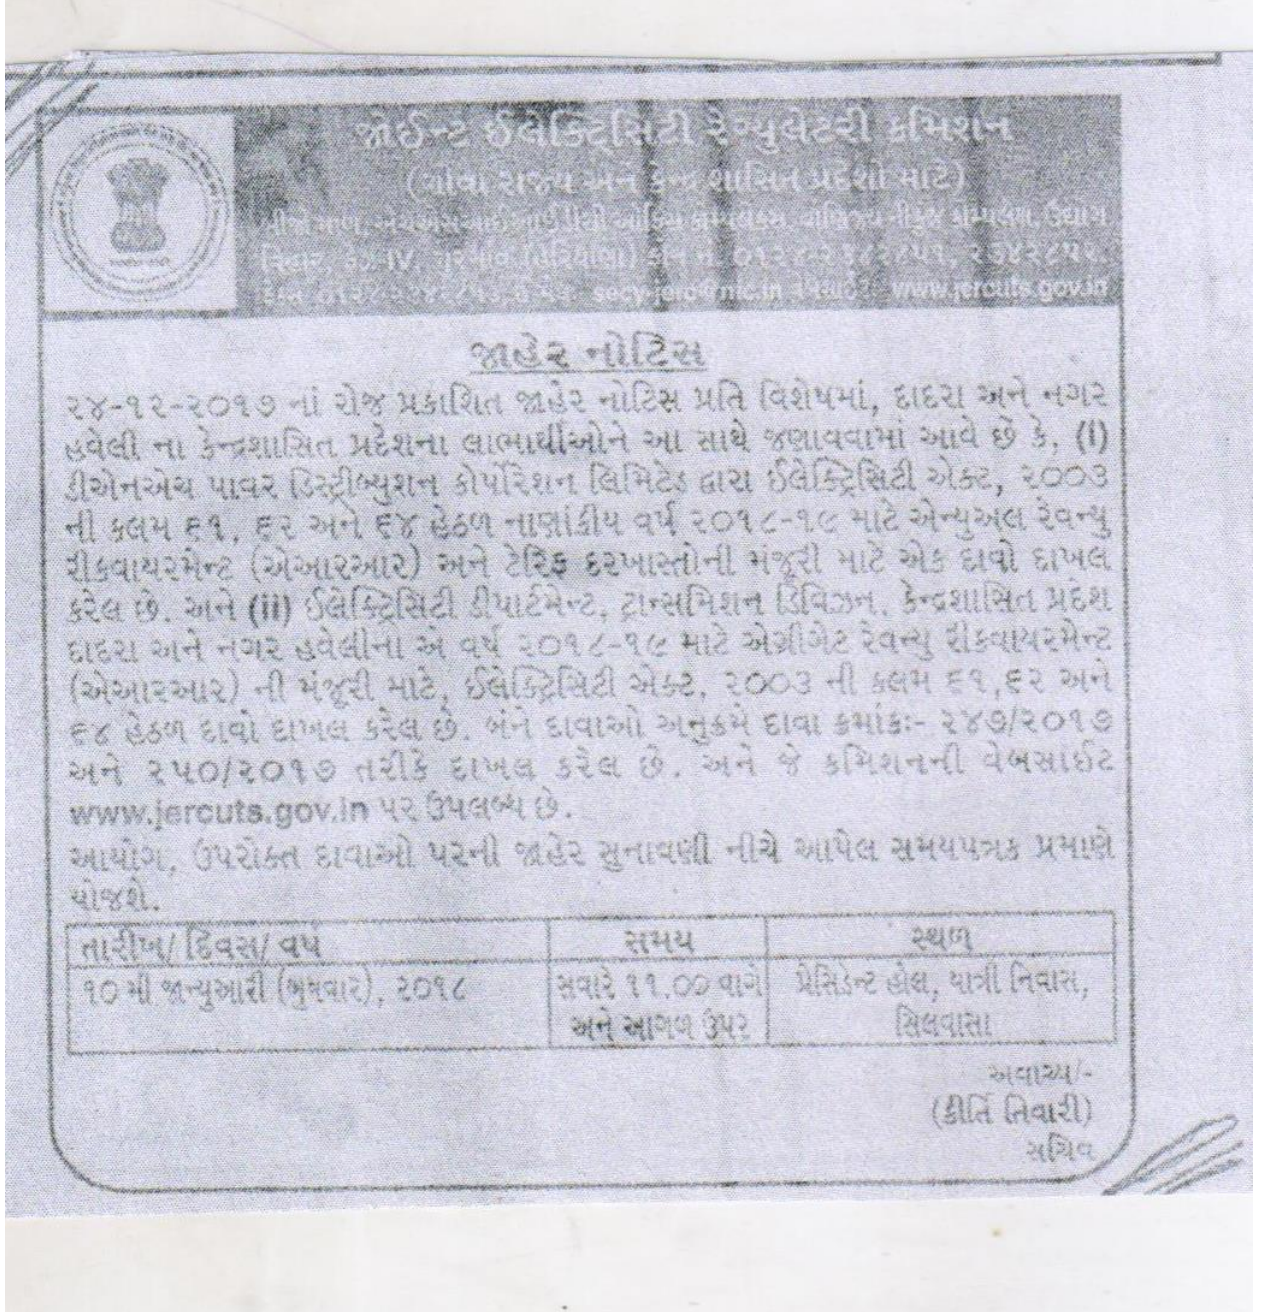 જોઈન્ટ ઈલેક્ટ્રિસિટી રેગ્યુલેટરી કમિશન
(ગોવા રાજ્ય અને કેન્દ્ર શાસિત પ્રદેશો માટે)
ઉદ્યોગ
વિહાર, ફેઝ-IV, ગુરગાંવ (હરિયાણા) ફોન નં.
secy-jerc@nic.in www.jercuts.gov.in
જાહેર નોટિસ
૨૪-૧૨-૨૦૧૭ નાં રોજ પ્રકાશિત જાહેર નોટિસ પ્રતિ વિશેષમાં, દાદરા અને નગર
હવેલી ના કેન્દ્રશાસિત પ્રદેશના લાભાર્થીઓને આ સાથે જણાવવામાં આવે છે કે, (i)
ડીએનએચ પાવર ડિસ્ટ્રીબ્યુશન કોર્પોરેશન લિમિટેડ દ્વારા ઈલેક્ટ્રિસિટી એક્ટ, ૨૦૦૩
ની કલમ ૬૧, ૬૨ અને ૬૪ હેઠળ નાણાંકીય વર્ષ ૨૦૧૮-૧૯ માટે એન્યુઅલ રેવન્યુ
રીકવાયરમેન્ટ (એઆરઆર) અને ટેરિફ દરખાસ્તોની મંજૂરી માટે એક દાવો દાખલ
કરેલ છે. અને (ii) ઈલેક્ટ્રિસિટી ડીપાર્ટમેન્ટ, ટ્રાન્સમિશન ડિવિઝન, કેન્દ્રશાસિત પ્રદેશ
દાદરા અને નગર હવેલીના એ વર્ષ ૨૦૧૮-૧૯ માટે એગ્રીગેટ રેવન્યુ રીકવાયરમેન્ટ
(એઆરઆર) ની મંજૂરી માટે, ઈલેક્ટ્રિસિટી એક્ટ, ૨૦૦૩ ની કલમ ૬૧,૬૨ અને
૬૪ હેઠળ દાવો દાખલ કરેલ છે. બંને દાવાઓ અનુક્રમે દાવા ક્રમાંકઃ- ૨૪૭/૨૦૧૭
અને ૨૫૦/૨૦૧૭ તરીકે દાખલ કરેલ છે. અને જે કમિશનની વેબસાઈટ
www.jercuts.gov.in પર ઉપલબ્ધ છે.
આયોગ, ઉપરોક્ત દાવાઓ પરની જાહેર સુનાવણી નીચે આપેલ સમયપત્રક પ્રમાણે
યોજશે.
તારીખ/ દિવસ/ વર્ષ સમય સ્થળ
૧૦ મી જાન્યુઆરી (બુધવાર), ૨૦૧૮ સવારે ૧૧.૦૦ વાગે પ્રેસિડેન્ટ હોલ, યાત્રી નિવાસ,
અને આગળ ઉપર સિલવાસા
અવાચ્ય/-
(કીર્તિ તિવારી)
સચિવ